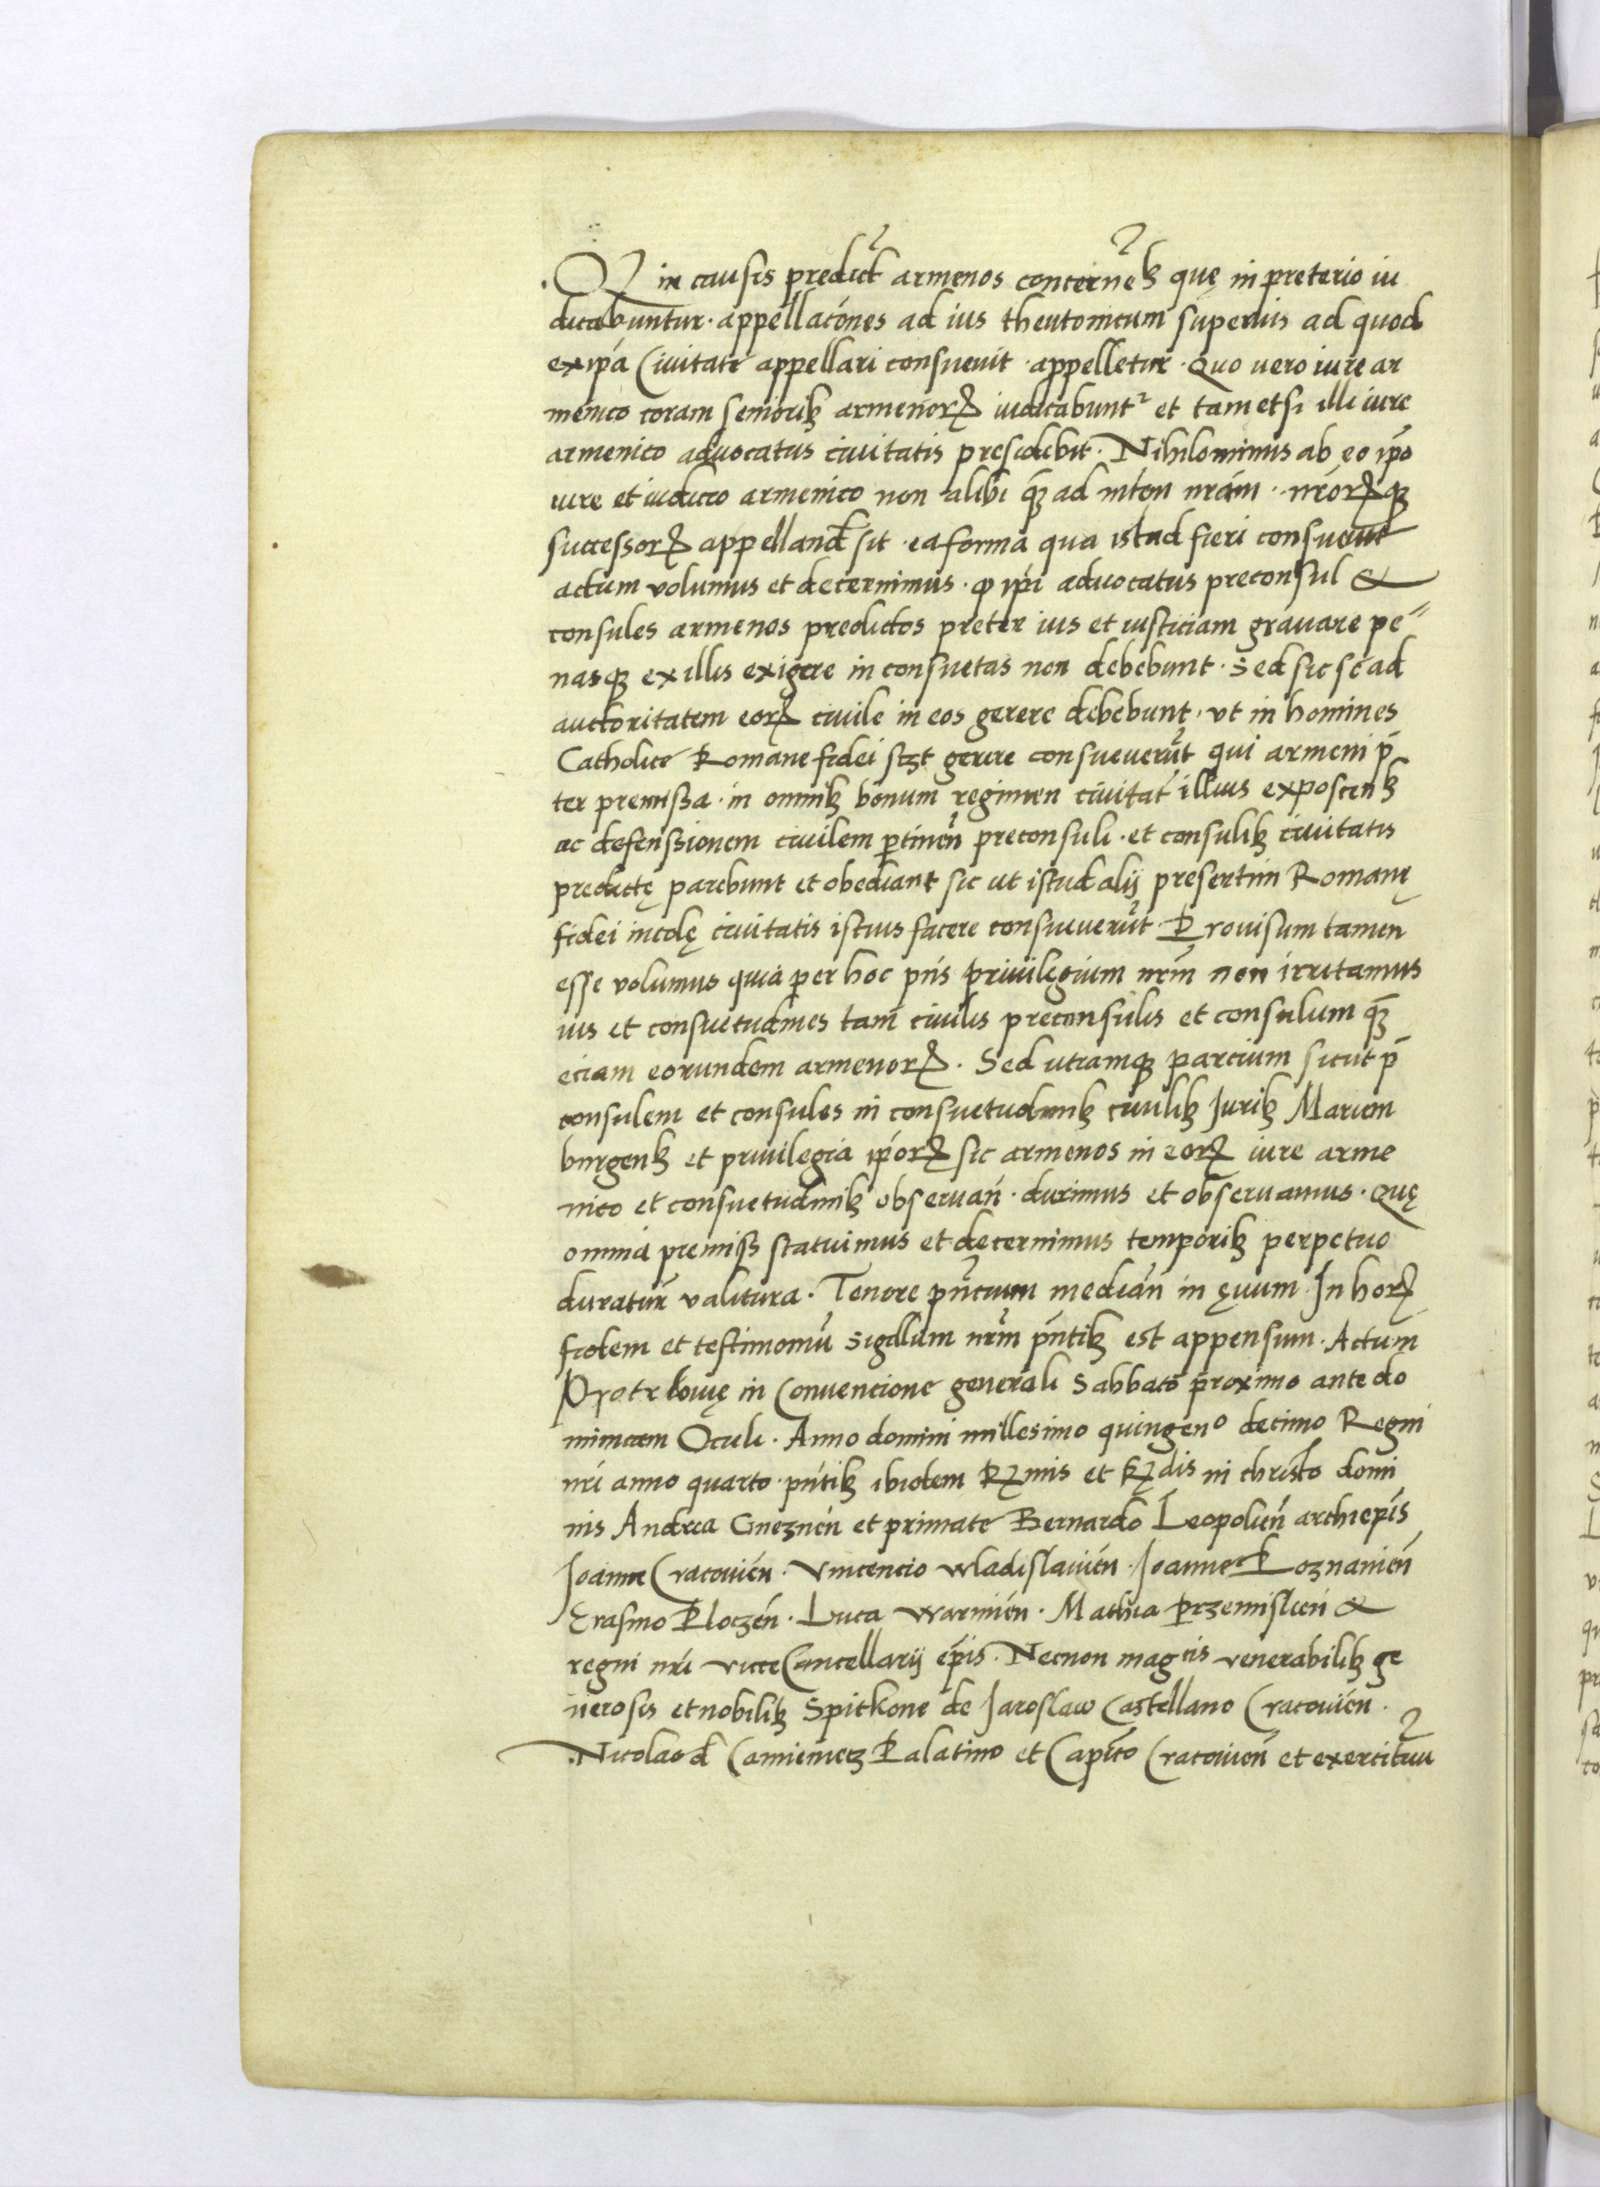 Q in causis predict armenos concerneꝫ quę in preterio iu
dicabuntur · appellacones ad ius theutonicum superius ad quod
ex ipa Civitate appellari consuevit · appelletur · Quo vero iure ar
menico coram senioribꝫ armenorꝝ iudicabunt et tametsi illi iure
armenico advocatus civitatis presidebit · Nihilominus ab eo ipo
iure et iudicio armenico non alibi qꝫ ad nram · nrorꝝqꝫ
successorꝝ appelland sit · ea forma qua istud fieri consuevit
actum volumus et decernimus · ꝙ ipi advocatus preconsul &
consules armenos predictos preter ius et iusticiam gravare pe〃
nasqꝫ ex illis exigere in consuetas non debebunt · Sed sic se ad
auctoritatem eorꝝ civile in eos gerere debebunt · ut in homines
Catholice Romane fidei gerere consueverut qui armeni p̄
ter premissa · in omnibꝫ bonum regimen civitat illius exposcenꝫ
ac defenssionem civilem ꝑtinen preconsuli · et consulibꝫ civitatis
predictę parebunt et obediant sic ut istud alij presertim Romanę
fidei incolę civitatis istius facere consueverut · Provisum tamen
esse volumus quia per hoc pns privilęgium nrm non irritamus
ius et consuetudines tam civilis preconsulis et consulum qꝫ
eciam eorundem armenorꝝ · Sed utramqꝫ parcium sicut p̄
consulem et consules in consuetudinibꝫ civilibꝫ Juribꝫ Mariem
burgenꝫ et privilegia iporꝝ sic armenos in eorꝝ iure arme
nico et consuetudinibꝫ observan · durimus et observamus · Quę
omnia premiss statuimus et decernimus temporibꝫ perpetuo
duratur valitura · Tenore pncium median in ęvum · In horꝝ
fidem et testimoniu sigillum nrm pntibꝫ est appensum · Actum
Pyotrkowię in Convencione generali Sabbato proximo ante do
minicam Oculi · Anno domini millesimo quingeno decimo Regni
nri anno quarto · pntibꝫ ibidem Rꝫmis et Rꝫdis in christo domi
nis Andrea Gneznen et primate Bernardo Leopolien archiepis
Joanne Cracovien · Vincencio wladislavien · Joanne Poznanien
Erasmo Ploczen · Luca Warmien · Mathia Przemislien &
regni nri vicecancellarij epis · Necnon magcis venerabilibꝫ ge
nerosis et nobilibꝫ Spitkone de Jaroslaw Castellano Cracovien ·
Nicolao d Camieniecz Palatino et Capito Cracovien et exercituu